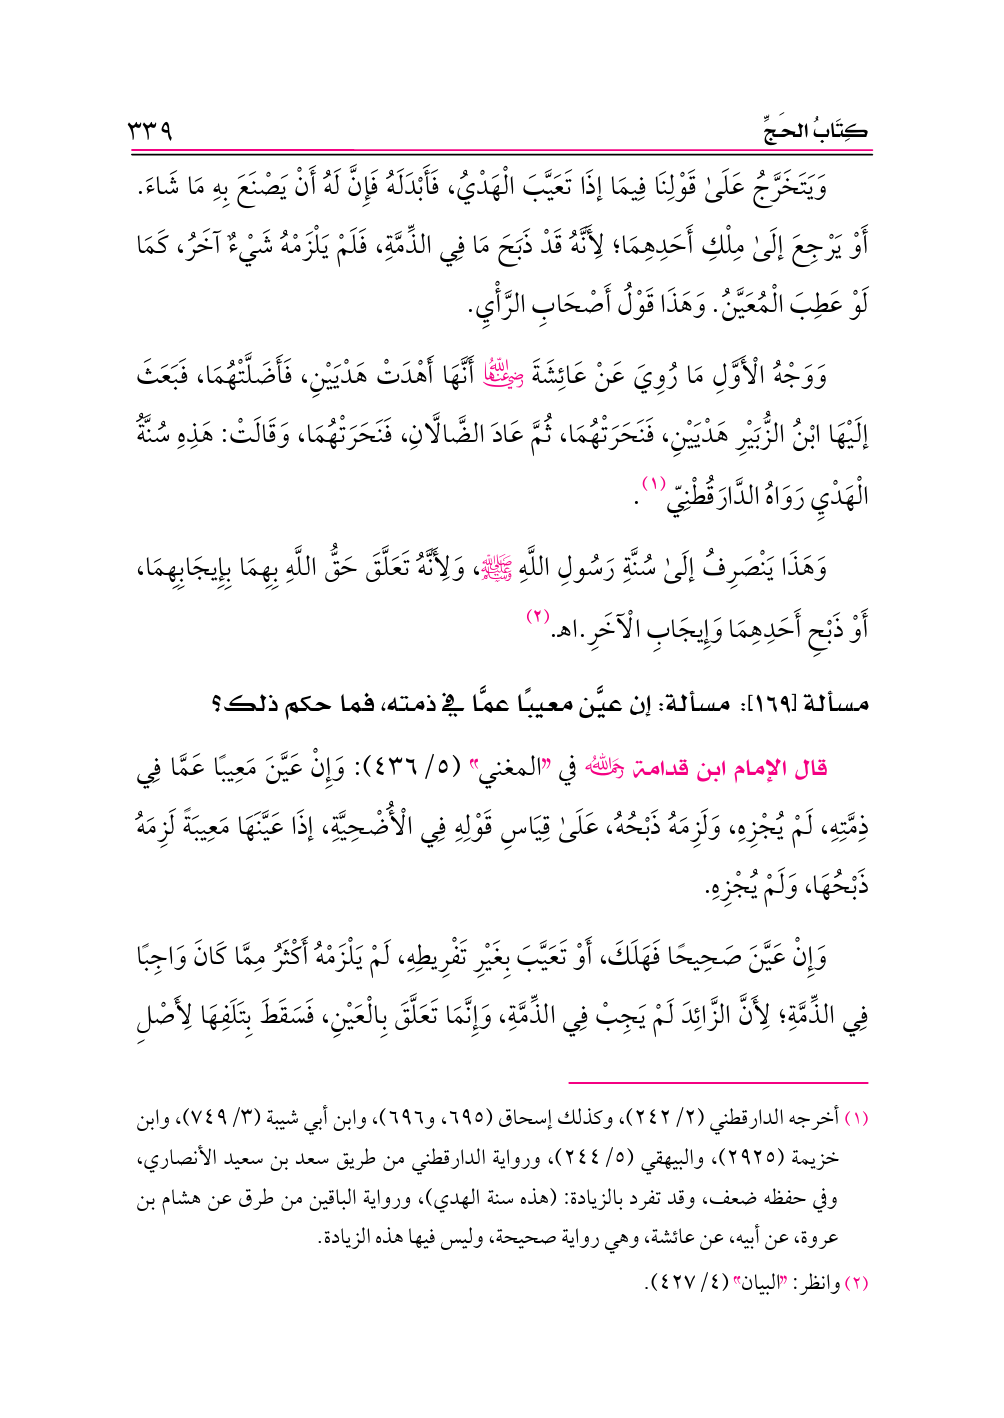 كِتَابُ الحَجِّ ٣٣٩
وَيَتَخَرَّجُ عَلَىٰ قَوْلِنَا فِيمَا إذَا تَعَيَّبَ الْهَدْيُ، فَأَبْدَلَهُ فَإِنَّ لَهُ أَنْ يَصْنَعَ بِهِ مَا شَاءَ.
أَوْ يَرْجِعَ إلَىٰ مِلْكِ أَحَدِهِمَا؛ لِأَنَّهُ قَدْ ذَبَحَ مَا فِي الذِّمَّةِ، فَلَمْ يَلْزَمْهُ شَيْءٌ آخَرُ، كَمَا
لَوْ عَطِبَ الْمُعَيَّنُ. وَهَذَا قَوْلُ أَصْحَابِ الرَّأْيِ.
وَوَجْهُ الْأَوَّلِ مَا رُوِيَ عَنْ عَائِشَةَ رضي الله عنها أَنَّهَا أَهْدَتْ هَدْيَيْنِ، فَأَضَلَّتْهُمَا، فَبَعَثَ
إلَيْهَا ابْنُ الزُّبَيْرِ هَدْيَيْنِ، فَنَحَرَتْهُمَا، ثُمَّ عَادَ الضَّالَّانِ، فَنَحَرَتْهُمَا، وَقَالَتْ: هَذِهِ سُنَّةُ
الْهَدْيِ رَوَاهُ الدَّارَقُطْنِيّ (١).
وَهَذَا يَنْصَرِفُ إلَىٰ سُنَّةِ رَسُولِ اللَّهِ ﷺ، وَلِأَنَّهُ تَعَلَّقَ حَقُّ اللَّهِ بِهِمَا بِإِيجَابِهِمَا،
أَوْ ذَبْحِ أَحَدِهِمَا وَإِيجَابِ الْآخَرِ.اهـ.(٢)
مسألة [١٦٩]: مسألة: إن عيَّن معيبًا عمَّا في ذمته، فما حكم ذلك؟
قال الإمام ابن قدامة رحمه الله في "المغني" (٥/ ٤٣٦): وَإِنْ عَيَّنَ مَعِيبًا عَمَّا فِي
ذِمَّتِهِ، لَمْ يُجْزِهِ، وَلَزِمَهُ ذَبْحُهُ، عَلَىٰ قِيَاسِ قَوْلِهِ فِي الْأُضْحِيَّةِ، إذَا عَيَّنَهَا مَعِيبَةً لَزِمَهُ
ذَبْحُهَا، وَلَمْ يُجْزِهِ.
وَإِنْ عَيَّنَ صَحِيحًا فَهَلَكَ، أَوْ تَعَيَّبَ بِغَيْرِ تَفْرِيطِهِ، لَمْ يَلْزَمْهُ أَكْثَرُ مِمَّا كَانَ وَاجِبًا
فِي الذِّمَّةِ؛ لِأَنَّ الزَّائِدَ لَمْ يَجِبْ فِي الذِّمَّةِ، وَإِنَّمَا تَعَلَّقَ بِالْعَيْنِ، فَسَقَطَ بِتَلَفِهَا لِأَصْلِ
(١) أخرجه الدارقطني (٢/ ٢٤٢)، وكذلك إسحاق (٦٩٥، و٦٩٦)، وابن أبي شيبة (٣/ ٧٤٩)، وابن
خزيمة (٢٩٢٥)، والبيهقي (٥/ ٢٤٤)، ورواية الدارقطني من طريق سعد بن سعيد الأنصاري،
وفي حفظه ضعف، وقد تفرد بالزيادة: (هذه سنة الهدي)، ورواية الباقين من طرق عن هشام بن
عروة، عن أبيه، عن عائشة، وهي رواية صحيحة، وليس فيها هذه الزيادة.
(٢) وانظر: "البيان" (٤/ ٤٢٧).